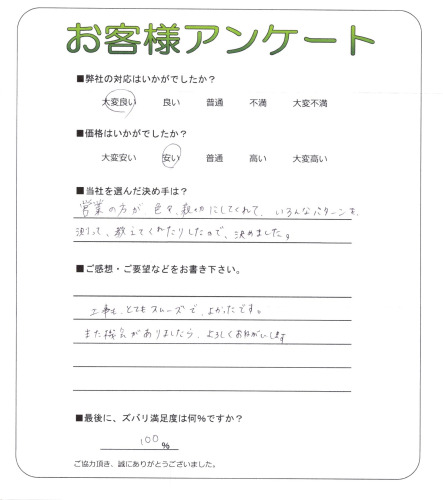 お客様アンケート
■弊社の対応はいかがでしたか？
大変良い 良い 普通 不満 大変不満
■価格はいかがでしたか？
大変安い 安い 普通 高い 大変高い
■当社を選んだ決め手は？
営業の方が色々、親切にしてくれて、いろんなパターンを、
測って、教えてくれたりしたので、決めました。
■ご感想・ご要望などをお書き下さい。
工事も、とてもスムーズで、よかったです。
また機会がありましたら、よろしくおねがいします
■最後に、ズバリ満足度は何%ですか？
100%
ご協力頂き、誠にありがとうございました。